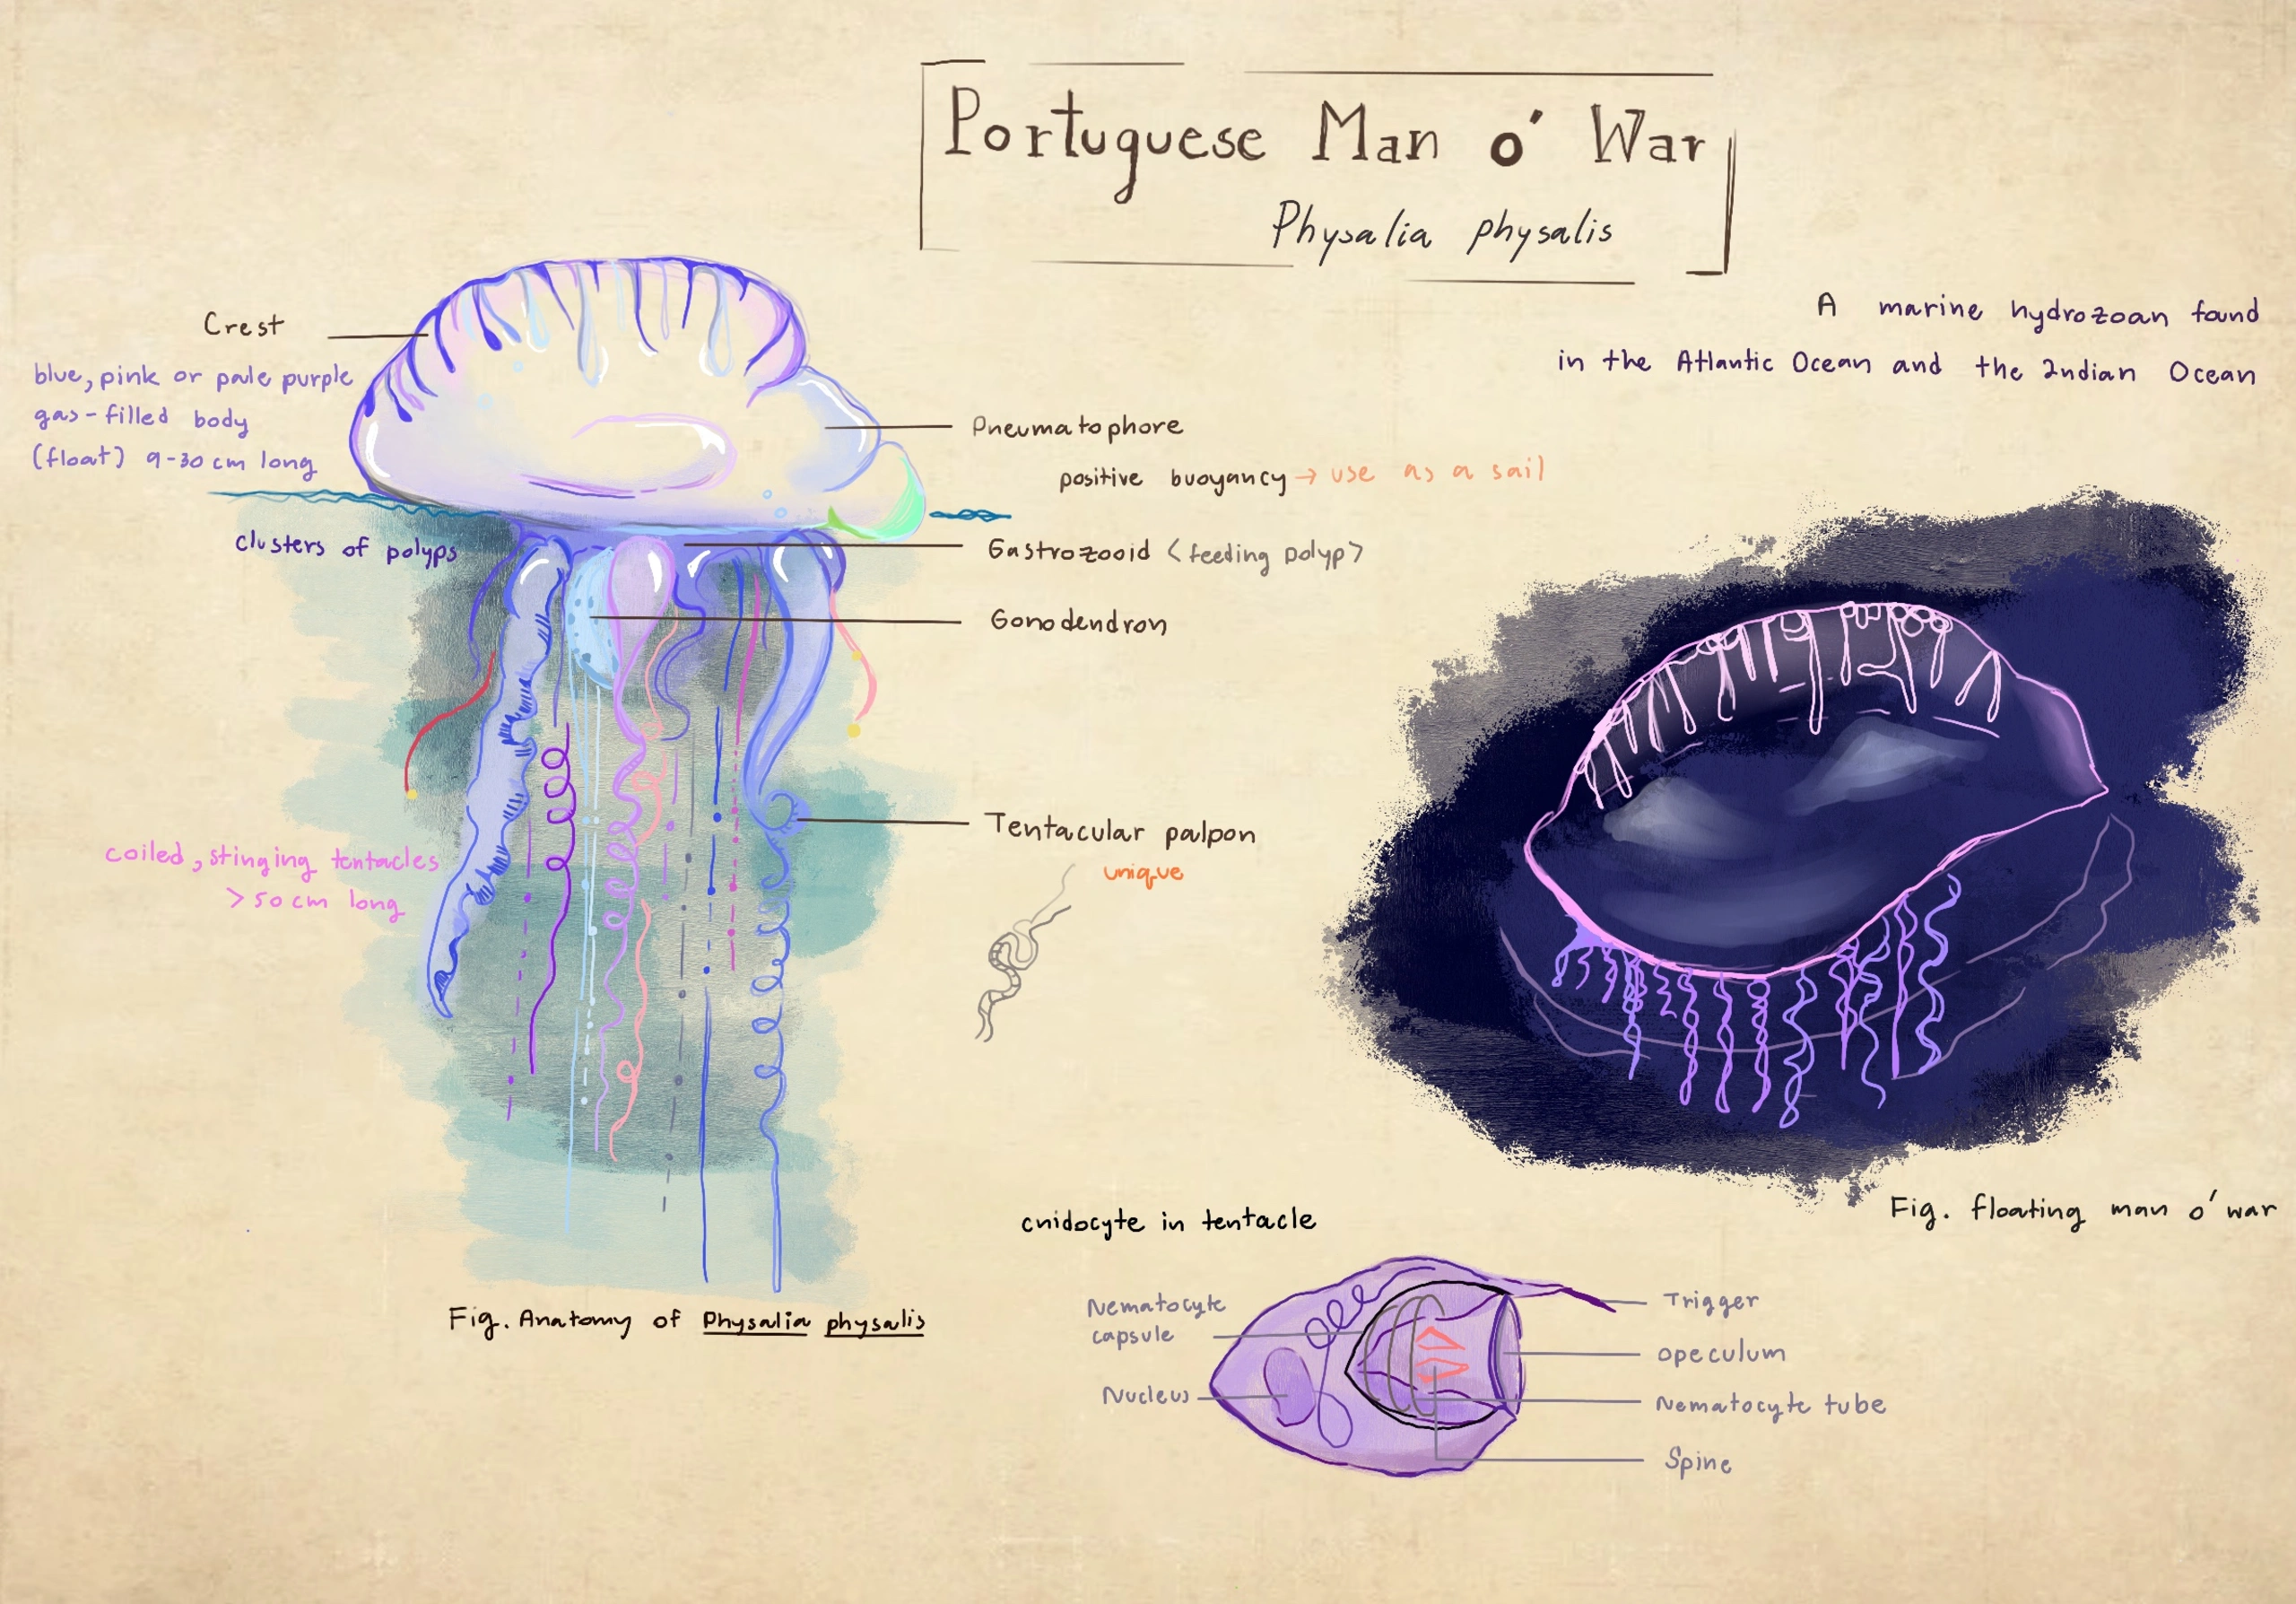 Portuguese Man o' War
Physalia physalis
A marine hydrozoan found
in the Atlantic Ocean and the Indian Ocean
Crest
blue, pink or pale purple
gas-filled body
(float) 9-30 cm long
Pneumatophore
positive buoyancy → use as a sail
clusters of polyps
Gastrozooid <feeding polyp>
Gonodendron
Tentacular palpon
unique
coiled, stinging tentacles
>50 cm long
Fig. floating man o' war
Fig. Anatomy of Physalia physalis
cnidocyte in tentacle
Nematocyte
capsule
Nucleus
Trigger
opeculum
Nematocyte tube
Spine